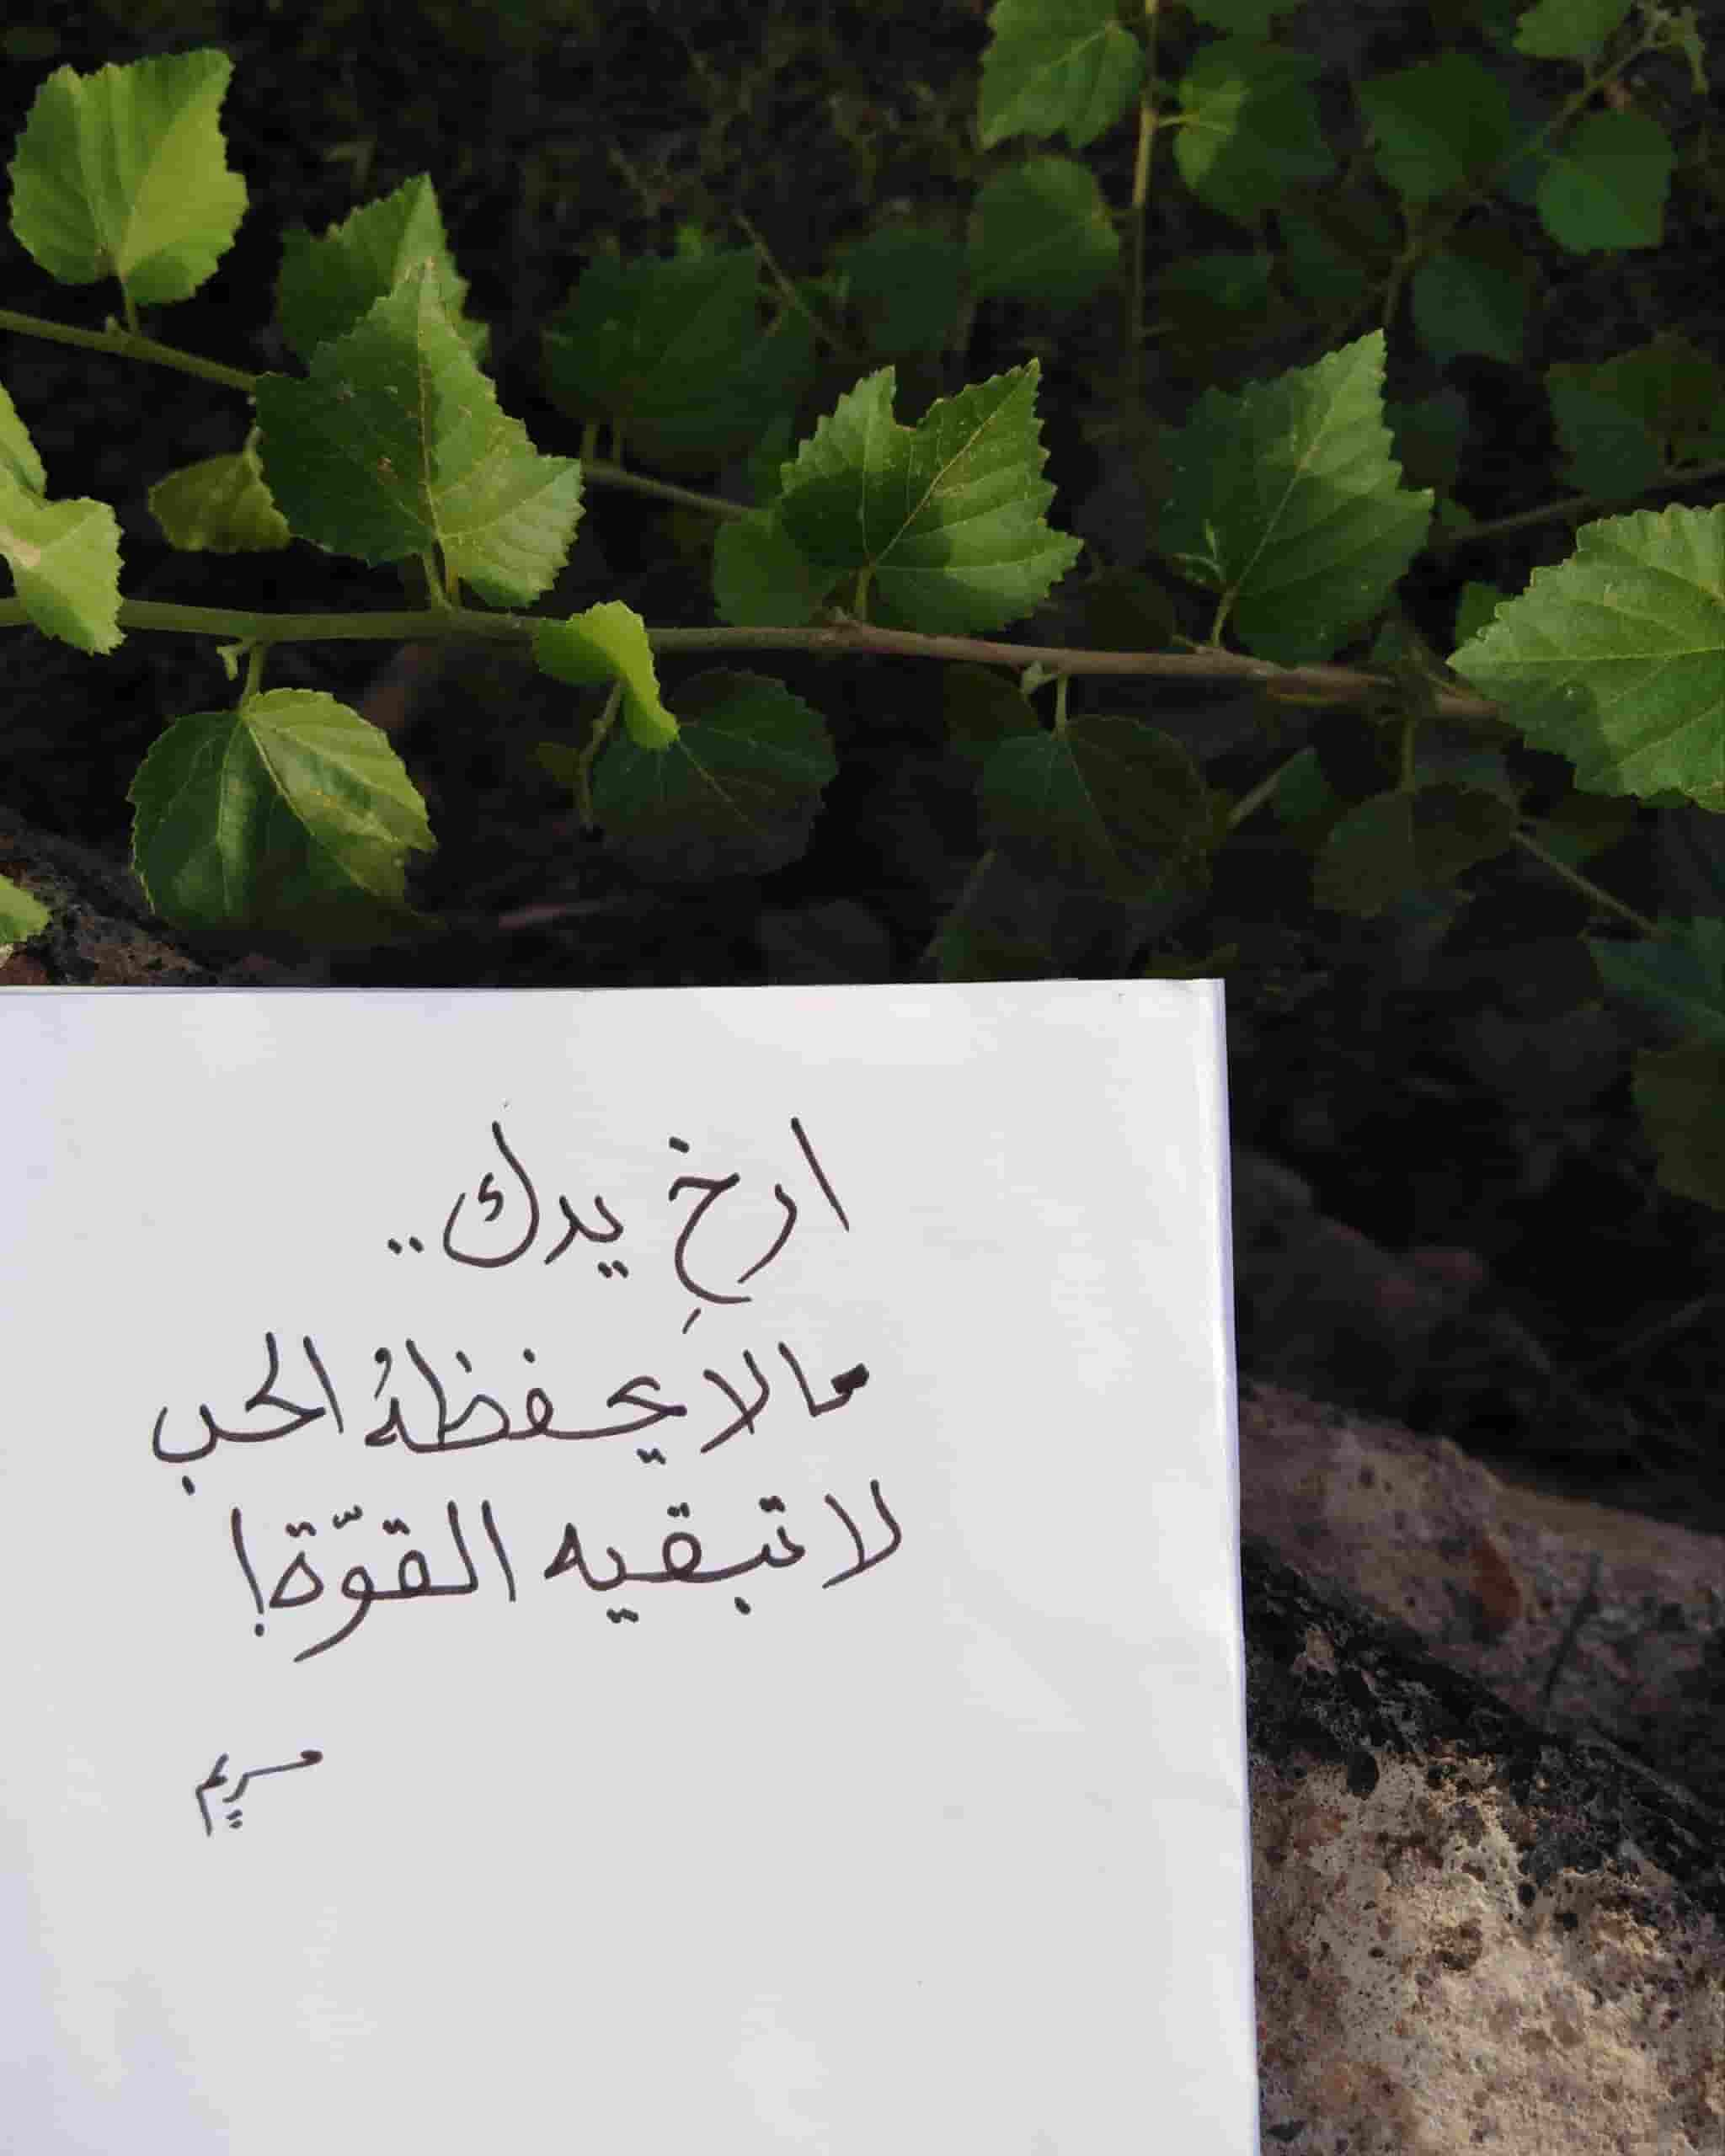 ارخِ يدك..
مالا يحفظهُ الحب
لا تبقيه القوّة!
مريم